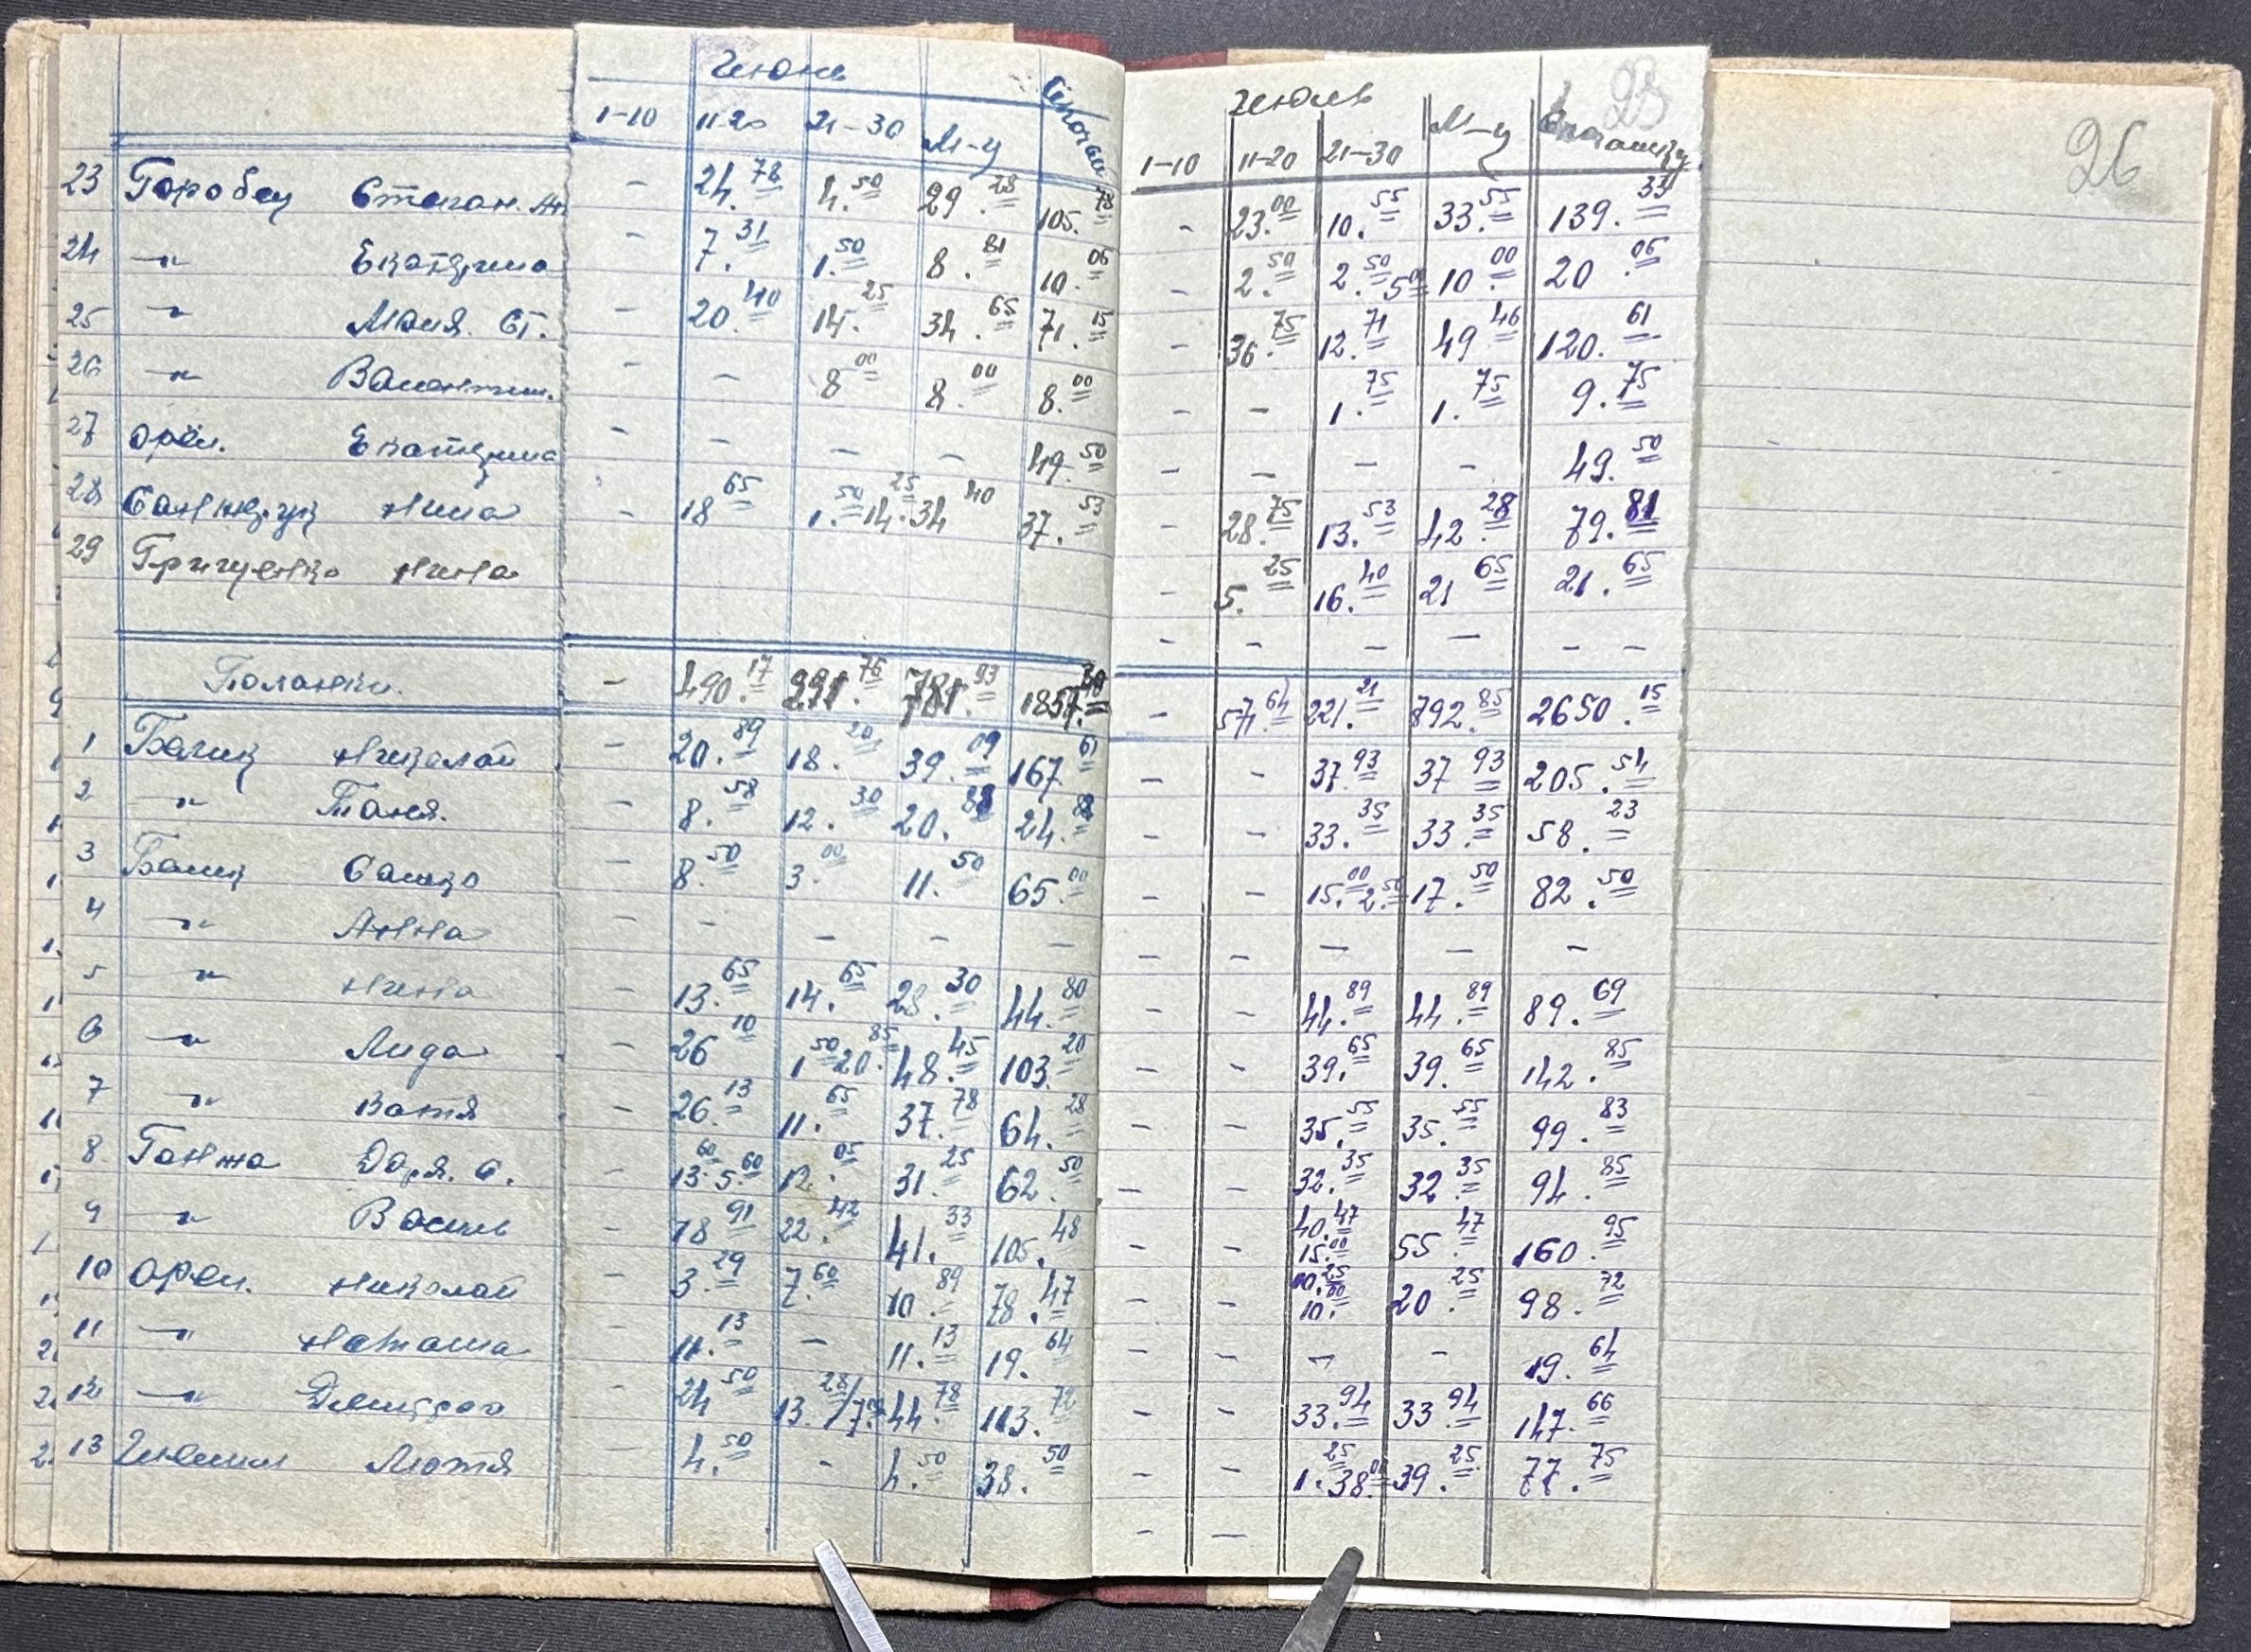 Июнь
1-10 11-20 21-30 М-ц
23 Горобец Степан. - 24.78 4.50 29.28 105.78
24 -"- Екатерина - 7.31 1.50 8.81 10.06
25 -"- Маня. Ст. - 20.40 14.25 34.65 71.15
26 -"- Валентин. - - 8.00 8.00 8.00
27 Орел. Екатерина - - - - 49.50
28 Нина - 18.65 1.50 14.25 34.40 37.53
29 Григуенко Нина
Полянки. - 490.17 291.76 781.93 1857.30
1 Балик Николай - 20.89 18.20 39.09 167.61
2 -"- Таня. - 8.58 12.30 20.88 24.88
3 Балик Сашко - 8.50 3.00 11.50 65.00
4 -"- Анна - - - - -
5 -"- Нина - 13.65 14.65 28.30 44.80
6 -"- Лида - 26.10 1.50 20.85 48.45 103.20
7 -"- Катя - 26.13 11.65 37.78 64.28
8 Ганжа Даря. С. - 13.60 5.60 12.05 31.25 62.50
9 -"- Василь - 18.91 22.42 41.33 105.48
10 Орел. Николай - 3.29 7.60 10.89 78.47
11 -"- Наташа - 11.13 - 11.13 19.64
12 -"- Дмитро - 24.50 13.28/7.00 44.78 113.72
13 Мотя 4.50 - 4.50 38.50
23
Июль
1-10 11-20 21-30 М-ц
- 23.00 10.55 33.55 139.33
- 2.50 2.50 5.00 10.00 20.06
- 36.75 12.71 49.46 120.61
- - 1.75 1.75 9.75
- - - - 49.50
- 28.75 13.53 42.28 79.81
- 5.25 16.40 21.65 21.65
- - - - -
- 571.64 221.21 792.85 2650.15
- - 37.93 37.93 205.54
- - 33.35 33.35 58.23
- - 15.00 2.50 17.50 82.50
- - - - -
- - 44.89 44.89 89.69
- - 39.65 39.65 142.85
- - 35.55 35.55 99.83
- - 32.35 32.35 94.85
- - 40.47 15.00 55.47 160.95
- - 10.25 10.00 20.25 98.72
- - - - 19.64
- - 33.94 33.94 147.66
- - 1.25 38.00 39.25 77.75
- -
26